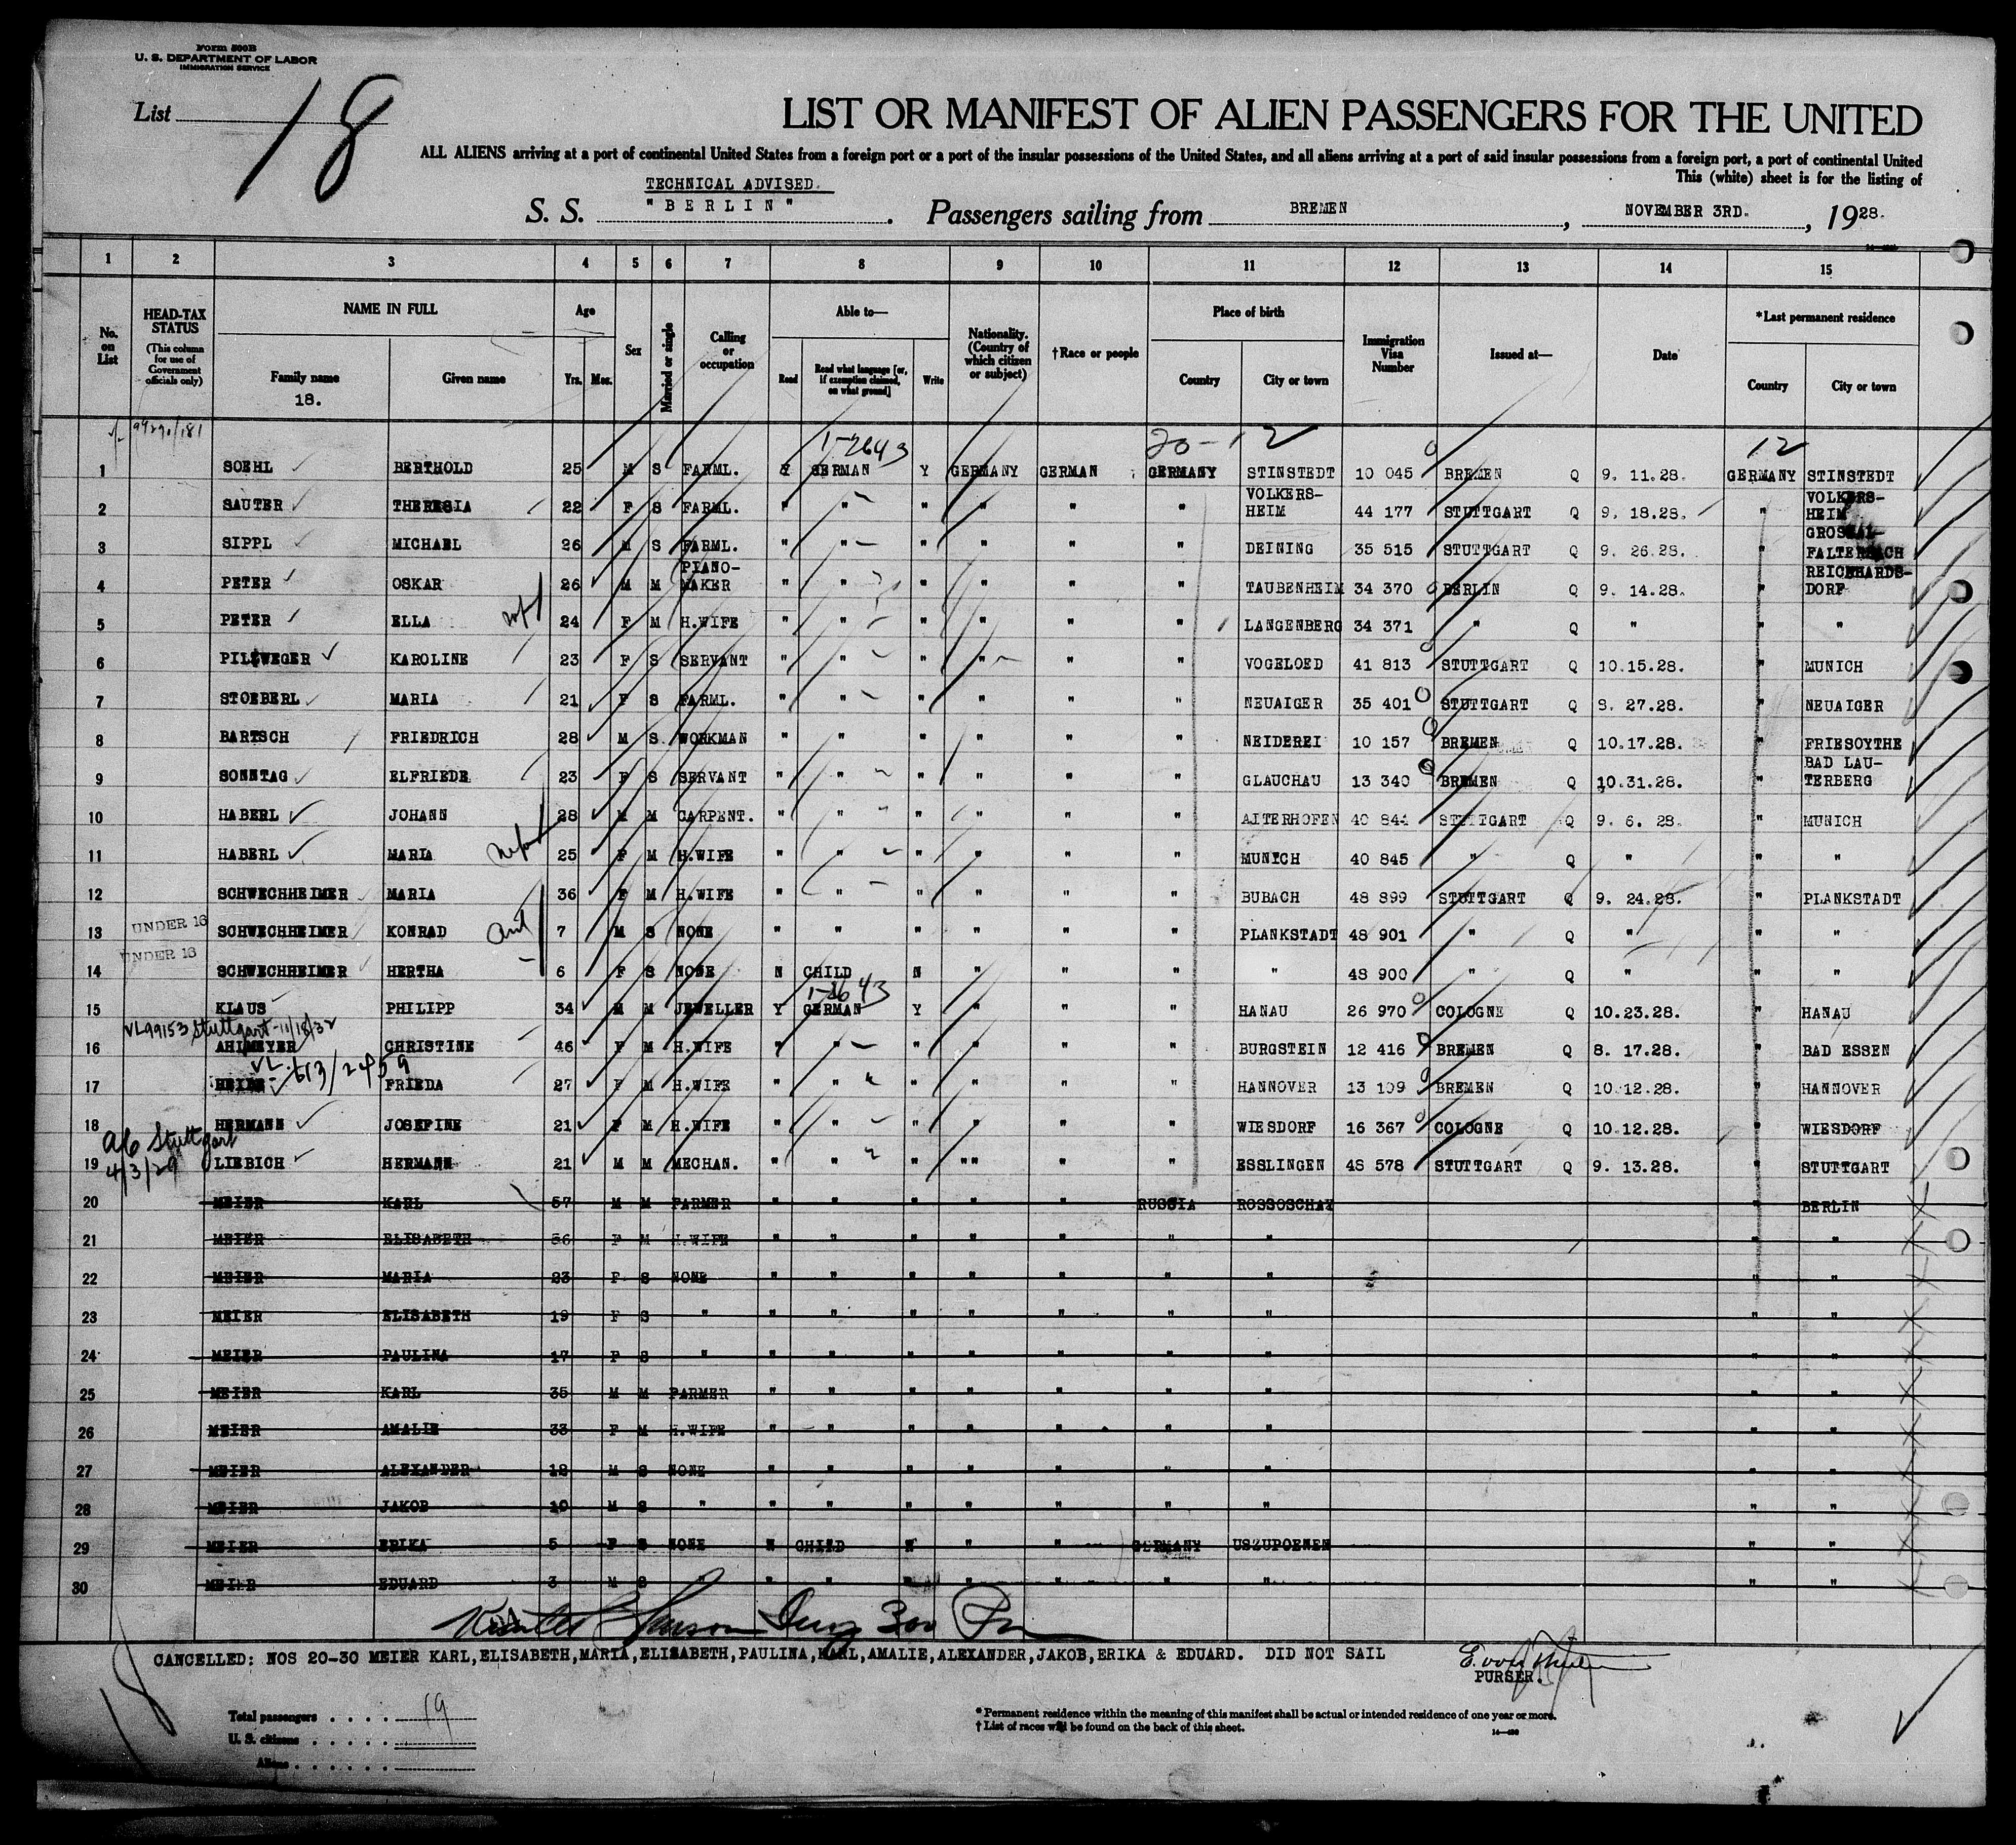 Form 500B
U. S. DEPARTMENT OF LABOR
IMMIGRATION SERVICE
List 18
LIST OR MANIFEST OF ALIEN PASSENGERS FOR THE UNITED
ALL ALIENS arriving at a port of continental United States from a foreign port or a port of the insular possessions of the United States, and all aliens arriving at a port of said insular possessions from a foreign port, a port of continental United
This (white) sheet is for the listing of
TECHNICAL ADVISED.
S. S. "BERLIN". Passengers sailing from BREMEN, NOVEMBER 3RD., 1928.
1 2 3 4 5 6 7 8 9 10 11 12 13 14 15
No. on List
HEAD-TAX STATUS (This column for use of Government officials only)
NAME IN FULL Family name 18. Given name
Age Yrs. Mos.
Sex
Married or single
Calling or occupation
Able to— Read Read what language [or, if exemption claimed, on what ground] Write
Nationality. (Country of which citizen or subject)
†Race or people
Place of birth Country City or town
Immigration Visa Number
Issued at—
Date
*Last permanent residence Country City or town
99290/181 1-2643 20-12 12
1 SOEHL BERTHOLD 25 M S FARML. Y GERMAN Y GERMANY GERMAN GERMANY STINSTEDT 10 045 BREMEN Q 9. 11.28. GERMANY STINSTEDT
2 SAUTER THERESIA 22 F S FARML. " " " " " " VOLKERS-HEIM 44 177 STUTTGART Q 9. 18.28. " VOLKERS-HEIM
3 SIPPL MICHAEL 26 M S FARML. " " " " " " DEINING 35 515 STUTTGART Q 9. 26.28. "
4 PETER OSKAR 26 M M PIANO-MAKER " " " " " " TAUBENHEIM 34 370 BERLIN Q 9. 14.28. " REICHHARDS-DORF
5 PETER ELLA 24 F M H.WIFE " " " " " " LANGENBERG 34 371 " Q " " "
6 KAROLINE 23 F S SERVANT " " " " " " VOGELOED 41 813 STUTTGART Q 10.15.28. " MUNICH
7 STOEBERL MARIA 21 F S FARML. " " " " " " NEUAIGER 35 401 STUTTGART Q 27.28. " NEUAIGER
8 BARTSCH FRIEDRICH 28 M S WORKMAN " " " " " " NEIDEREI 10 157 BREMEN Q 10.17.28. " FRIESOYTHE
9 SONNTAG ELFRIEDE 23 F S SERVANT " " " " " " GLAUCHAU 13 340 BREMEN Q 10.31.28. " BAD LAU-TERBERG
10 HABERL JOHANN 28 M M CARPENT. " " " " " " AITERHOFEN 40 844 STUTTGART Q 9. 6. 28. " MUNICH
11 HABERL MARIA 25 F M H.WIFE " " " " " " MUNICH 40 845 " Q " " "
12 SCHWECHHEIMER MARIA 36 F M H.WIFE " " " " " " BUBACH 48 899 STUTTGART Q 9. 24.28. " PLANKSTADT
13 UNDER 16 SCHWECHHEIMER KONRAD 7 M S NONE " " " " " " PLANKSTADT 48 901 " Q " " "
14 UNDER 16 SCHWECHHEIMER HERTHA 6 F S NONE N CHILD N " " " " 48 900 " Q " " "
1-2643
15 KLAUS PHILIPP 34 M M JEWELLER Y GERMAN Y " " " HANAU 26 970 COLOGNE Q 10.23.28. " HANAU
VL99153 Stuttgart-11/18/32
16 AHLMEYER CHRISTINE 46 F M H.WIFE " " " " " " BURGSTEIN 12 416 BREMEN Q 8. 17.28. " BAD ESSEN
17 FRIEDA 27 F M H.WIFE " " " " " " HANNOVER 13 109 BREMEN Q 10.12.28. " HANNOVER
18 HERMANN JOSEFINE 21 F M H.WIFE " " " " " " WIESDORF 16 367 COLOGNE Q 10.12.28. " WIESDORF
Stuttgart 4/3/29
19 LIEBICH HERMANN 21 M M MECHAN. " " " "" " " ESSLINGEN 48 578 STUTTGART Q 9. 13.28. " STUTTGART
20 MEIER KARL 57 M M FARMER " " " " " RUSSIA ROSSOSCHAY " BERLIN
21 MEIER ELISABETH 56 F M H.WIFE " " " " " " " " "
22 MEIER MARIA 23 F S NONE " " " " " " " " "
23 MEIER ELISABETH 19 F S " " " " " " " " " "
24 MEIER PAULINA 17 F S " " " " " " " " " "
25 MEIER KARL 35 M M FARMER " " " " " " " " "
26 MEIER AMALIE 33 F M H.WIFE " " " " " " " " "
27 MEIER ALEXANDER 18 M S NONE " " " " " " " " "
28 MEIER JAKOB 10 M S " " " " " " " " " "
29 MEIER ERIKA 5 F S NONE N CHILD N " " GERMANY USZUPOENEN " "
30 MEIER EDUARD 3 M S " " " " " " " " " "
CANCELLED: NOS 20-30 MEIER KARL,ELISABETH,MARIA,ELISABETH,PAULINA,KARL,AMALIE,ALEXANDER,JAKOB,ERIKA & EDUARD. DID NOT SAIL
PURSER.
Total passengers . . . . 19
U. S. citizens . . . . .
Aliens . . . . . .
* Permanent residence within the meaning of this manifest shall be actual or intended residence of one year or more.
† List of races will be found on the back of this sheet.